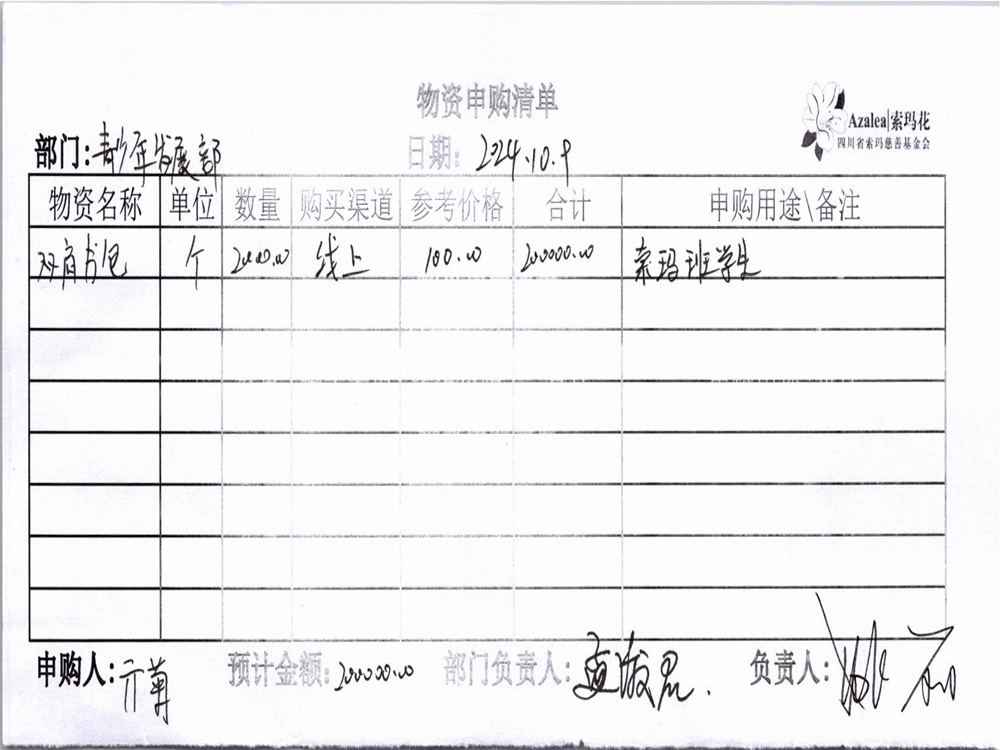 物资申购清单
Azalea|索玛花
四川省索玛慈善基金会
部门:青少年发展部 日期: 2024.10.9
物资名称 单位 数量 购买渠道 参考价格 合计 申购用途\备注
双肩书包 个 2000.00 线上 100.00 200000.00 索玛班学生
申购人: 预计金额: 200000.00 部门负责人: 负责人: